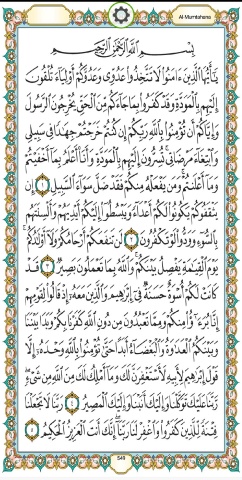 Al-Mumtahana
بِسْمِ اللَّهِ الرَّحْمَٰنِ الرَّحِيمِ
يَا أَيُّهَا الَّذِينَ آمَنُوا لَا تَتَّخِذُوا عَدُوِّي وَعَدُوَّكُمْ أَوْلِيَاءَ تُلْقُونَ
إِلَيْهِم بِالْمَوَدَّةِ وَقَدْ كَفَرُوا بِمَا جَاءَكُم مِّنَ الْحَقِّ يُخْرِجُونَ الرَّسُولَ
وَإِيَّاكُمْ أَن تُؤْمِنُوا بِاللَّهِ رَبِّكُمْ إِن كُنتُمْ خَرَجْتُمْ جِهَادًا فِي سَبِيلِي
وَابْتِغَاءَ مَرْضَاتِي تُسِرُّونَ إِلَيْهِم بِالْمَوَدَّةِ وَأَنَا أَعْلَمُ بِمَا أَخْفَيْتُمْ
وَمَا أَعْلَنتُمْ وَمَن يَفْعَلْهُ مِنكُمْ فَقَدْ ضَلَّ سَوَاءَ السَّبِيلِ ١ إِن
يَثْقَفُوكُمْ يَكُونُوا لَكُمْ أَعْدَاءً وَيَبْسُطُوا إِلَيْكُمْ أَيْدِيَهُمْ وَأَلْسِنَتَهُم
بِالسُّوءِ وَوَدُّوا لَوْ تَكْفُرُونَ ٢ لَن تَنفَعَكُمْ أَرْحَامُكُمْ وَلَا أَوْلَادُكُمْ
يَوْمَ الْقِيَامَةِ يَفْصِلُ بَيْنَكُمْ وَاللَّهُ بِمَا تَعْمَلُونَ بَصِيرٌ ٣ قَدْ
كَانَتْ لَكُمْ أُسْوَةٌ حَسَنَةٌ فِي إِبْرَاهِيمَ وَالَّذِينَ مَعَهُ إِذْ قَالُوا لِقَوْمِهِمْ
إِنَّا بُرَآءُ مِنكُمْ وَمِمَّا تَعْبُدُونَ مِن دُونِ اللَّهِ كَفَرْنَا بِكُمْ وَبَدَا بَيْنَنَا
وَبَيْنَكُمُ الْعَدَاوَةُ وَالْبَغْضَاءُ أَبَدًا حَتَّىٰ تُؤْمِنُوا بِاللَّهِ وَحْدَهُ إِلَّا
قَوْلَ إِبْرَاهِيمَ لِأَبِيهِ لَأَسْتَغْفِرَنَّ لَكَ وَمَا أَمْلِكُ لَكَ مِنَ اللَّهِ مِن شَيْءٍ
رَّبَّنَا عَلَيْكَ تَوَكَّلْنَا وَإِلَيْكَ أَنَبْنَا وَإِلَيْكَ الْمَصِيرُ ٤ رَبَّنَا لَا تَجْعَلْنَا
فِتْنَةً لِّلَّذِينَ كَفَرُوا وَاغْفِرْ لَنَا رَبَّنَا إِنَّكَ أَنتَ الْعَزِيزُ الْحَكِيمُ ٥
549